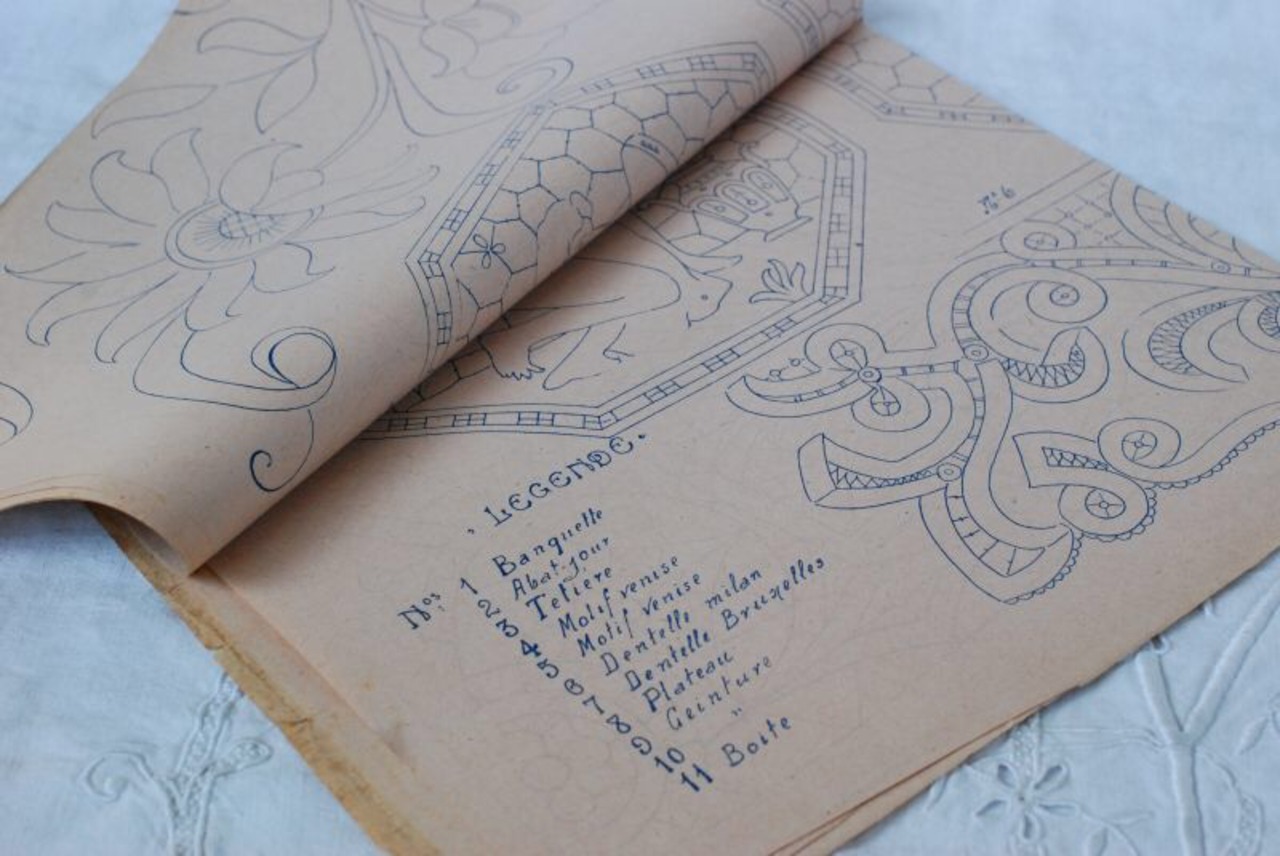 No 6
. LEGENDE.
Nos 1 Banquette
2 Abat-jour
3 Tetiere
4 Motif venise
5 Motif venise
6 Dentelle milan
7 Dentelle Bruxelles
8 Plateau
9 Ceinture
10 "
11 Boite